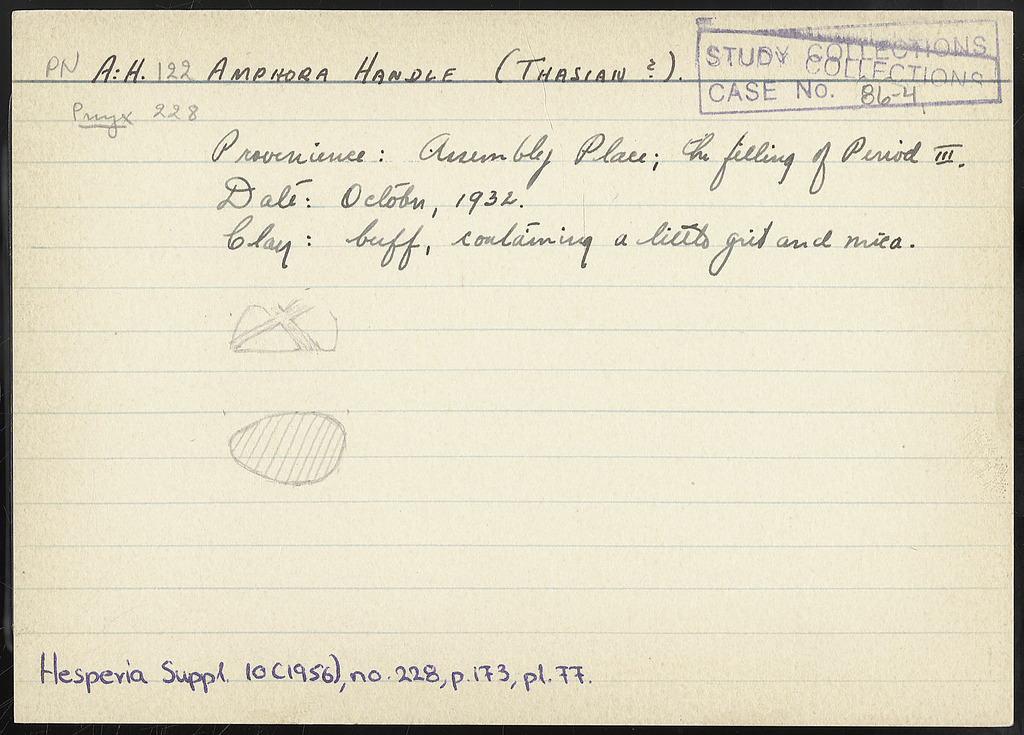 PN A:H. 122 AMPHORA HANDLE (THASIAN ?).
STUDY COLLECTIONS
COLLECTIONS
CASE No. 86-4
Pnyx 228
Provenience: Assembly Place; the filling of Period III.
Date: October, 1932.
Clay: buff, containing a little grit and mica.
Hesperia Suppl. 10 (1956), no. 228, p. 173, pl. 77.